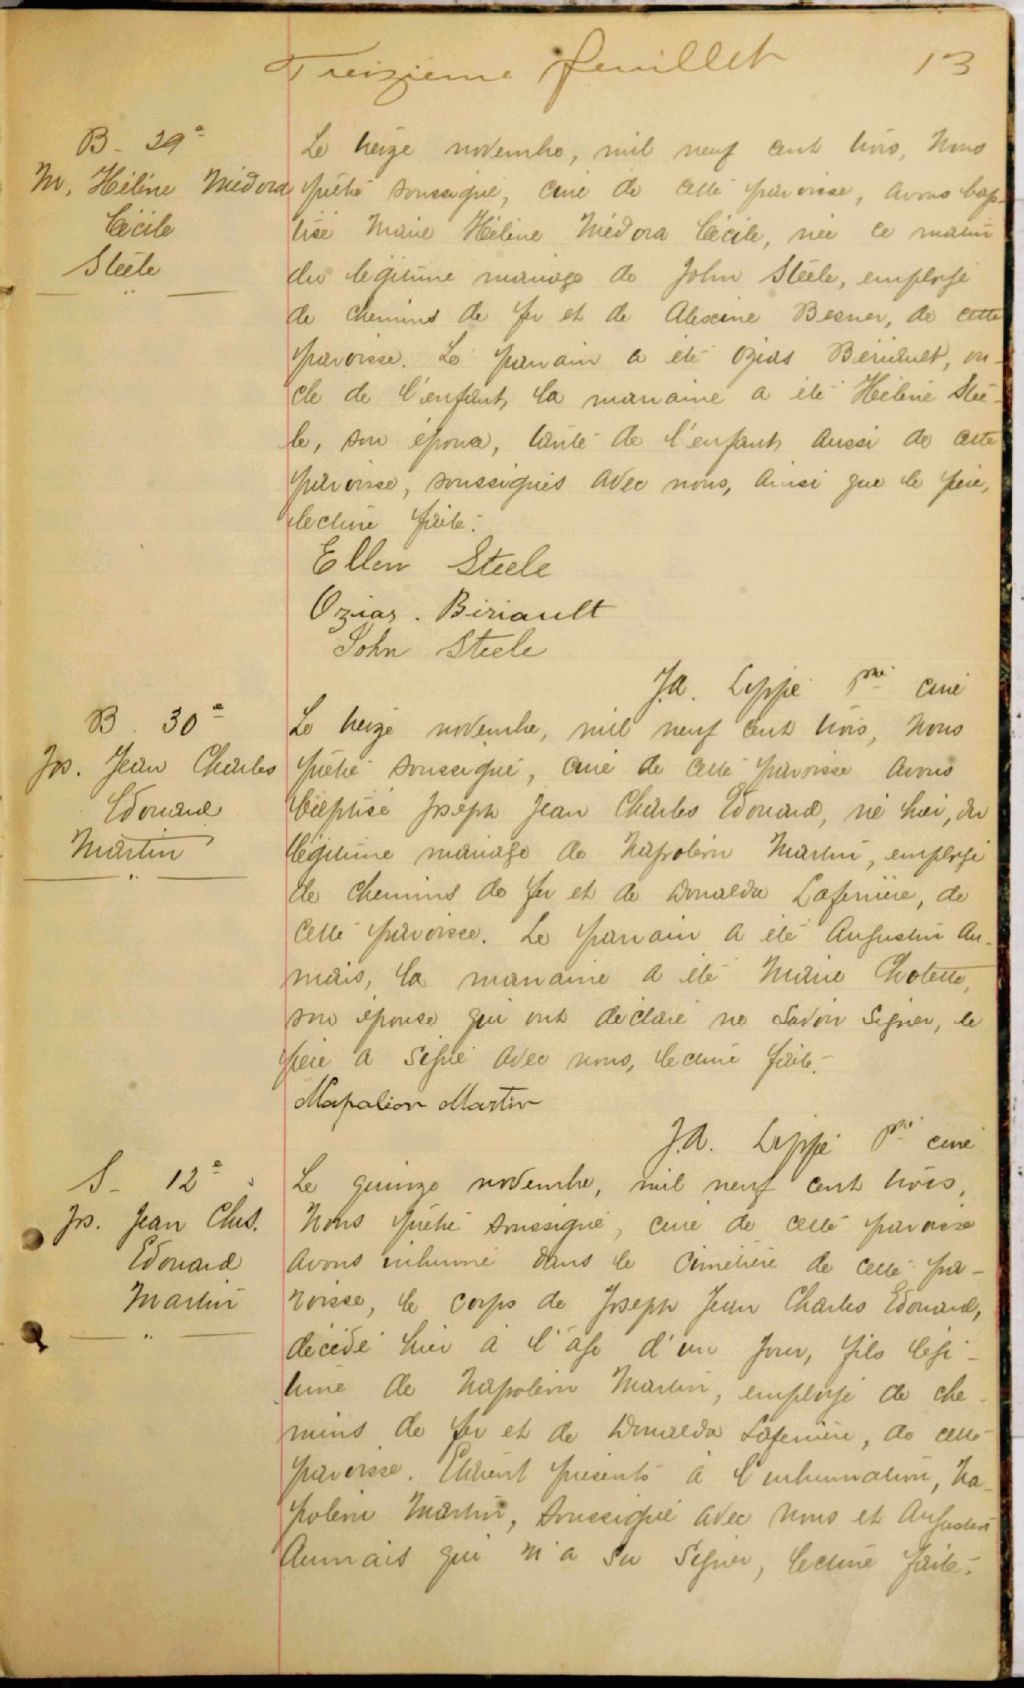 Treizième feuillet 13
B. 29e
M. Hélène Médora
Cécile
Steele
Le treize novembre, mil neuf cent trois, Nous
prêtre soussigné, curé de cette paroisse, avons bap-
tisé Marie Hélène Médora Cécile, née ce matin
du légitime mariage de John Steele, employé
de chemins de fer et de Alexine Besner, de cette
paroisse. Le parrain a été Ozias Bériault, on-
cle de l'enfant, la marraine a été Hélène Stee-
le, son épouse, tante de l'enfant, aussi de cette
paroisse, soussignés avec nous, ainsi que le père,
lecture faite.
Ellen Steele
Ozias. Bériault
John Steele
J.A. Lippé ptre curé
B. 30e
Jos. Jean Charles
Edouard
Martin
Le treize novembre, mil neuf cent trois, Nous
prêtre soussigné, curé de cette paroisse avons
baptisé Joseph Jean Charles Edouard, né hier, du
légitime mariage de Napoléon Martin, employé
de chemins de fer et de Donalda Lafernière, de
cette paroisse. Le parrain a été Augustin Au-
mais, la marraine a été Marie Cholette,
son épouse qui ont déclaré ne savoir signer, le
père a signé avec nous, lecture faite.
Napolion Martin
J.A. Lippé ptre curé
S. 12e
Jos. Jean Chs.
Edouard
Martin
Le quinze novembre, mil neuf cent trois,
Nous prêtre soussigné, curé de cette paroisse
avons inhumé dans le cimetière de cette pa-
roisse, le corps de Joseph Jean Charles Edouard,
décédé hier à l'âge d'un jour, fils légi-
time de Napoléon Martin, employé de che-
mins de fer et de Donalda Lafernière, de cette
paroisse. Étaient présents à l'inhumation, Na-
poléon Martin, soussigné avec nous et Augustin
Aumais qui n'a su signer, lecture faite.